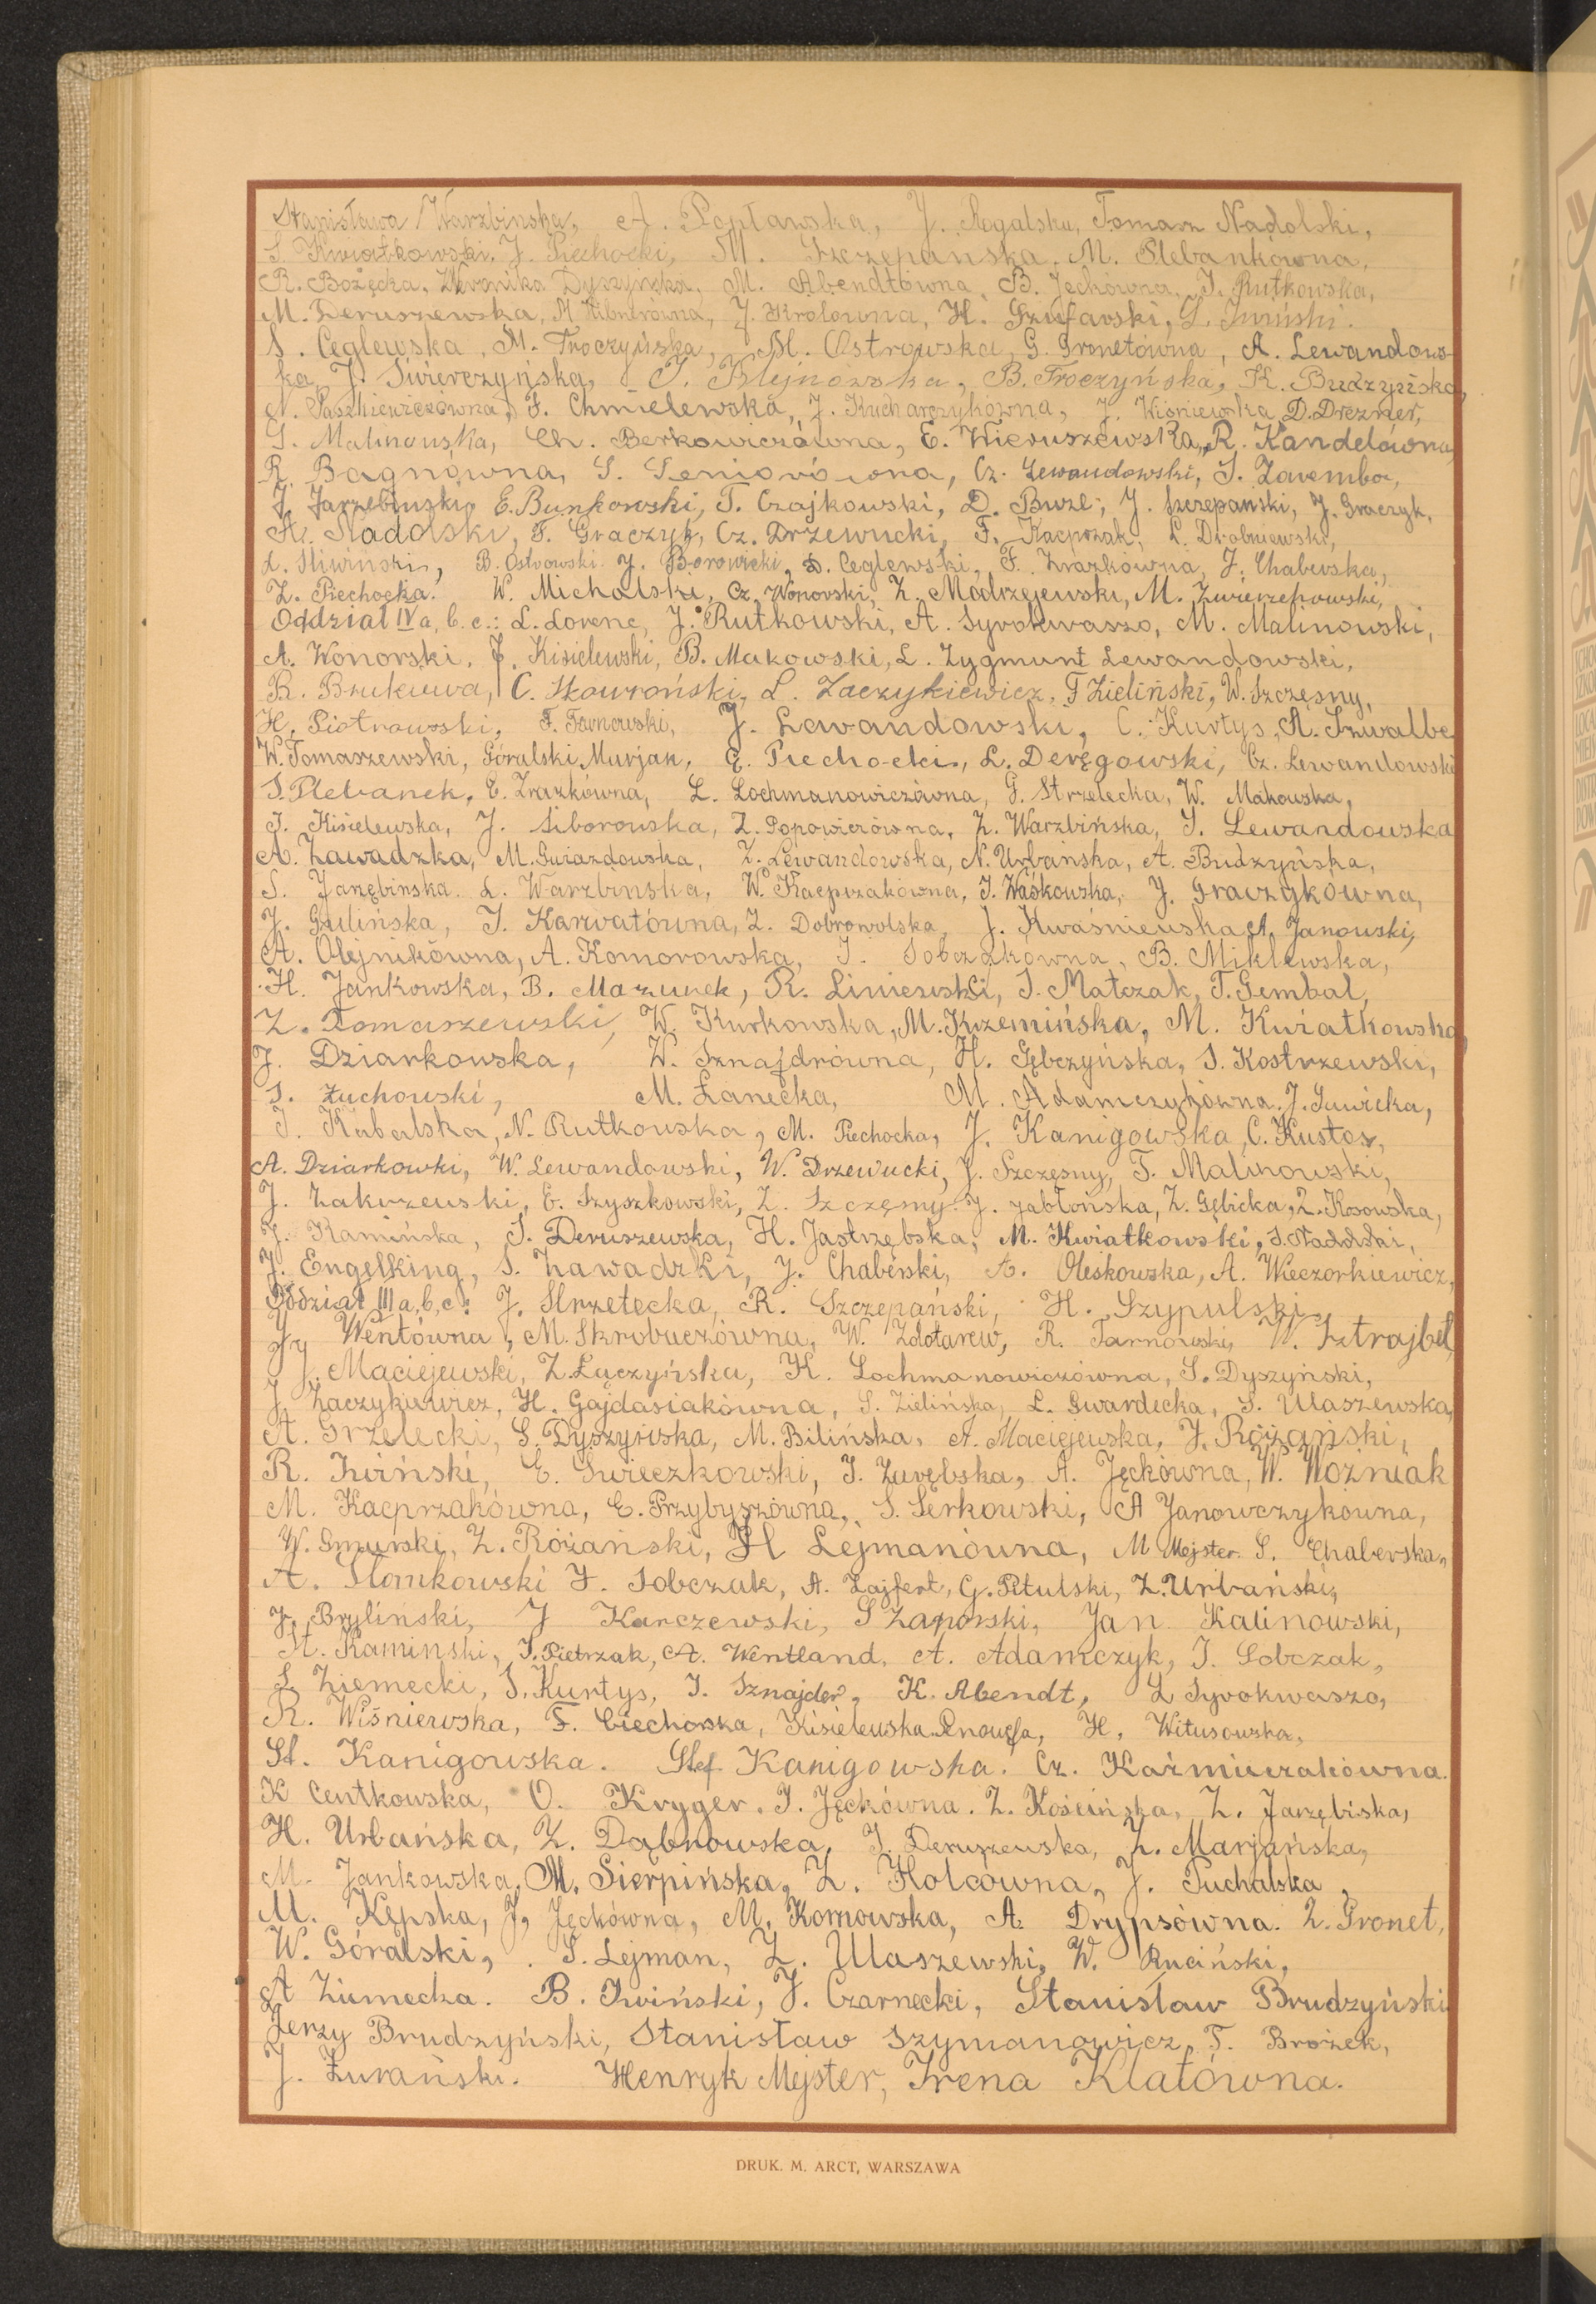 Stanisława Warzbinska, A. Popławska, J. Rogalska, Tomasz Nadolski,
S. Kwiatkowski, J. Piechocki, M. Szczepanska, M. Plebankówna,
R. Bożęcka, Weronika Dyszyńska, M. Abendtówna, B. Jęckówna, I. Rutkowska,
M. Deruszewska, M. Hibnerówna, J. Krolowna, H. Szufarski,
S. Ceglewska, M. Troczyńska, M. Ostrowska, G. Gronetówna, A. Lewandows-
ka, J. Świerczyńska, J. Plejnowska, B. Troczyńska, K. Budzyńska,
N. Paszkiewiczówna, F. Chmielewska, J. Kucharzykówna, J. Wiśniewska, D. Drezner,
S. Malinowska, Ch. Berkowiczówna, E. Wieruszewska, R. Kandelówna,
R. Bagnówna, S. Seniorówna, Cz. Lewandowski, S. Zaremba,
J. Jarzebinski, E. Bunkowski, T. Czajkowski, D. Buze, J. Szczepanski, J. Graczyk,
A. Nadolski, F. Graczyk, Cz. Drzewucki, F. Kacprzak, L. Drobniewski,
L. Sliwinski, B. Ostrowski. J. Borowicki, S. Ceglewski, F. Zrazkówna, J. Chaberska,
Z. Piechocka. W. Michalski, Cz. Wonorski, Z. Modrzejewski, M. Zwierzchowski,
Oddział IV a, b. c.: L. Lorenc, J. Rutkowski, A. Syrokwaszo, M. Malinowski,
A. Wonorski, J. Kisielewski, B. Makowski, L. Zygmunt Lewandowski,
R. Brukuwa, C. Skowroński, L. Zaczykiewicz, F Zieliński, W. Szczęsny,
H. Piotrowski, F. Tarnowski, J. Lewandowski, C. Kurtys, A. Szwalbe
W. Tomaszewski, Góralski Marjan, E. Piechocki, L. Deręgowski, Cz. Lewandowski
S. Plebanek, E. Zrazkówna, L. Lochmanowiczówna, G. Strzelecka, W. Makowska,
J. Kisielewska, J. Siborowska, Z. Popowiczówna, Z. Warzbińska, S. Lewandowska
A. Zawadzka, M. Gwiazdowska, Z. Lewandowska, N. Urbańska, A. Budzyńska,
S. Jarzębinska. L. Warzbinska, W. Kacprzakówna, J. Waśkowska, J. Graczykówna,
J. Gulińska, J. Karwatówna, Z. Dobrowolska, J. Kwaśniewska, A. Janowski,
A. Olejnikówna, A. Komorowska, J. Sobczakówna, B. Miklewska,
H. Jankowska, B. Mazurek, R. Liniewski, S. Matczak, T. Gembal,
Z. Tomaszewski, W. Kurkowska, M. Krzemińska, M. Kwiatkowska,
J. Dziarkowska, W. Sznajdrówna, H. Gębczyńska, S. Kostrzewski,
S. Żuchowski, M. Łanecka, M. Adamczykówna, J.
J. Kabalska, N. Rutkowska, M. Piechocka, J. Kanigowska, C. Kustos,
A. Dziarkowki, W. Lewandowski, W. Drzewucki, J. Szczęsny, T. Malinowski,
J. Zakrzewski, E. Szyszkowski, Z. Szczęsny. J. Jabłońska, Z. Gębicka, Z. Kosowska,
J. Kamińska, S. Deruszewska, H. Jastrzębska, M. Kwiatkowski, S. Nadolski,
J. Engelking, S. Zawadzki, J. Chaberski, A. Oleśkowska, A. Wieczorkiewicz,
Oddział III a, b, c: J. Strzelecka, R. Szczepański, H. Szypulski
J. Wentówna, M. Skrobuczówna, W. Zdołarew, R. Tarnowski, W. Sztrajbel,
J. Maciejewski, Z. Łączyńska, K. Lochmanowiczówna, S. Dyszyński,
J. Zaczykiewicz, H. Gajdasiakówna, S. Zielińska, L. Gwardecka, S. Ulaszewska,
A. Grzelecki, S. Dyszyńska, M. Bilińska, A. Maciejewska, J. Różański,
R. Iwiński, E. Świeczkowski, J. Zarębska, A. Jęckówna, W. Woźniak
M. Kacprzakówna, E. Przybyszówna, S. Serkowski, A Janowczykówna,
W. Gmurski, Z. Różański, H Lejmanówna, M Mejster. S. Chaberska,
A. Słomkowski F. Sobczak, A. Zajfert, G. Pitulski, Z. Urbański,
J. Bryliński, J Karczewski, S Zaporski, Jan Kalinowski,
A. Kaminski, J. Pietrzak, A. Wentland, A. Adamczyk, J. Sobczak,
S. Ziemecki, S. Kurtys, J. Sznajder, K. Abendt, L Syrokwaszo,
R. Wiśniewska, F. Ciechorska, Kisielewska H. Witusowska,
St. Kanigowska. Stef. Kanigowska. Cz. Kaźmierakówna.
K Centkowska, O. Kryger, J. Jęckówna. Z. Kościńska, Z. Jarzębiska,
H. Urbańska, Z. Dąbrowska, J. Deruszewska, Z. Marjańska,
M. Jankowska, M. Sierpińska, Z. Holcówna, J. Puchalska,
M. Kępska, J, Jęckówna, M. Komowska, A. Drypsówna. Z. Gronet,
W. Góralski, S. Lejman, Z. Ulaszewski, W. Ruciński,
A Ziemecka. B. Iwiński, J. Czarnecki, Stanisław Brudzyński
Jerzy Brudzyński, Stanisław Szymanowicz, T. Brożek,
J. Żurański. Henryk Mejster, Irena Klatówna.
DRUK. M. ARCT, WARSZAWA